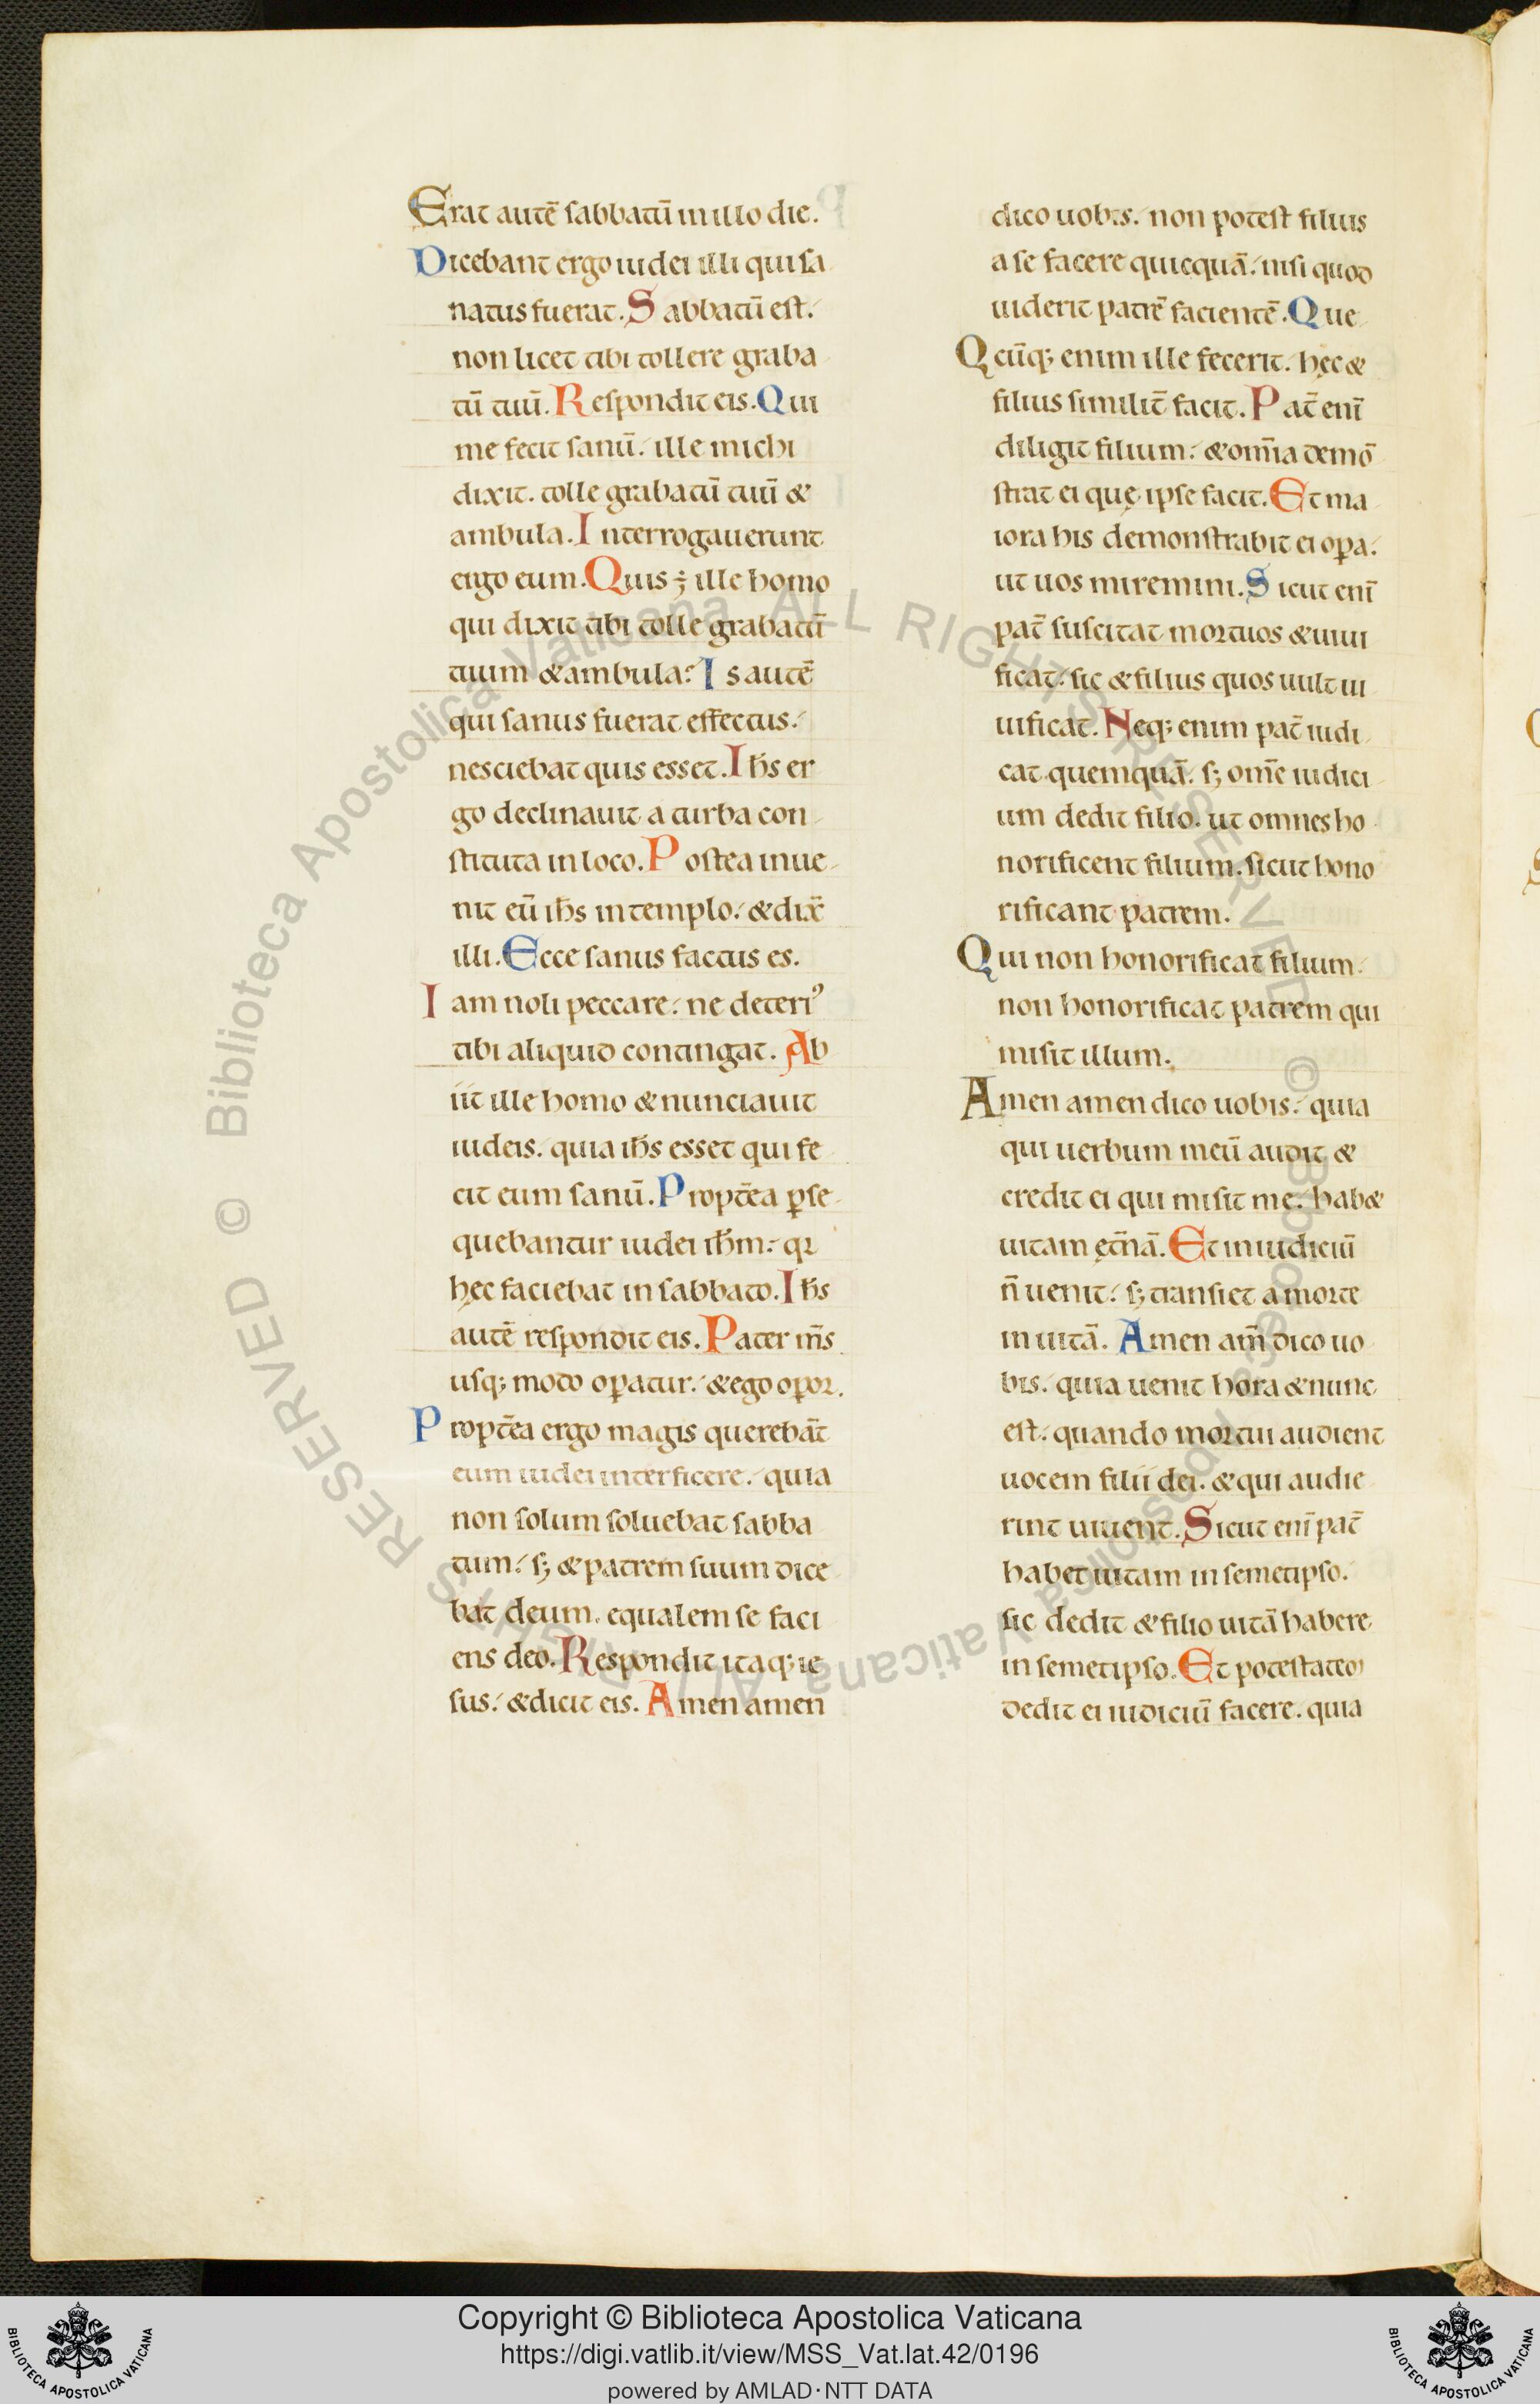 Erat autē sabbatū in illo die.
Dicebant ergo iudei illi qui sa
natus fuerat. Sabbatū est.
non licet tibi tollere graba
tū tuū. Respondit eis. Qui
me fecit sanū. ille michi
dixit. tolle grabatū tuū &
ambula. Interrogauerunt
ergo eum. Quis ÷ ille homo
qui dixit tibi tolle grabatū
tuum & ambula? Is autē
qui sanus fuerat effectus.
nesciebat quis esset. Ihs er
go declinauit a turba con
stituta in loco. Postea inue
nit eū ihs in templo. & dix̄
illi. Ecce sanus factus es.
Iam noli peccare. ne deteri᾽
tibi aliquid contingat. Ab
iit ille homo & nunciauit
iudeis. quia ihs esset qui fe
cit eum sanū. Propt̄ea ꝑse
quebantur iudei ihm. qꝛ
hęc faciebat in sabbato. Ihs
autē respondit eis. Pater m̄s
usq; modo oꝑatur. & ego oꝑoꝛ.
Propt̄ea ergo magis querebāt
eum iudei interficere. quia
non solum soluebat sabba
tum. s; & patrem suum dice
bat deum. equalem se faci
ens deo. Respondit itaq; ie
sus. & dicit eis. Amen amen
dico uobis. non potest filius
a se facere quicquā. nisi quod
uiderit patrē facientē. Que
Qcūq; enim ille fecerit. hęc &
filius similit̄ facit. Pat̄ enī
diligit filium. & om̄ia demō
strat ei quę ipse facit. Et ma
iora his demonstrabit ei oꝑa.
ut uos miremini. Sicut enī
pat̄ suscitat mortuos & uiui
ficat. sic & filius quos uult ui
uificat. Neq; enim pat̄ iudi
cat quemquā. s; om̄e iudici
um dedit filio. ut omnes ho
norificent filium. sicut hono
rificant patrem.
Qui non honorificat filium.
non honorificat patrem qui
misit illum.
Amen amen dico uobis. quia
qui uerbum meū audit &
credit ei qui misit me. hab&
uitam ęt̄nā. Et in iudiciū
n̄ uenit. s; transiet a morte
in uitā. Amen am̄ dico uo
bis. quia uenit hora & nunc
est. quando mortui audient
uocem filii dei. & qui audie
rint uiuent. Sicut enī pat̄
habet uitam in semetipso.
sic dedit & filio uitā habere
in semetipso. Et potestatē
dedit ei iudiciū facere. quia
© Biblioteca Apostolica Vaticana ALL RIGHTS RESERVED
© Biblioteca Apostolica Vaticana ALL RIGHTS RESERVED
Copyright © Biblioteca Apostolica Vaticana
https://digi.vatlib.it/view/MSS_Vat.lat.42/0196
powered by AMLAD·NTT DATA
BIBLIOTECA APOSTOLICA VATICANA
BIBLIOTECA APOSTOLICA VATICANA